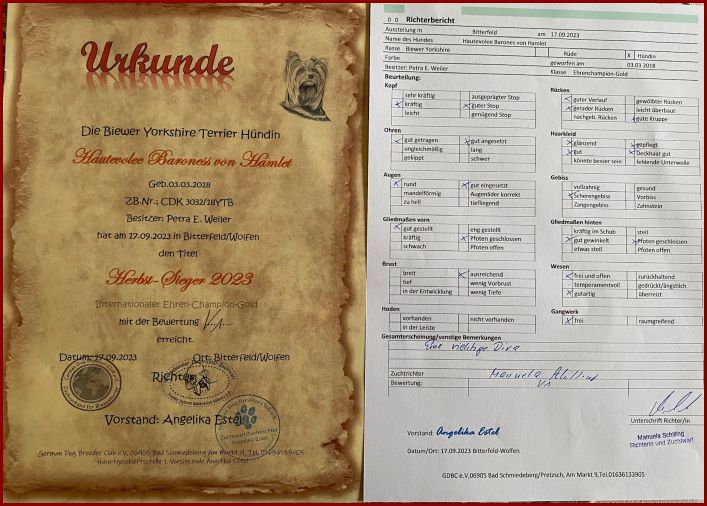 Urkunde
Die Biewer Yorkshire Terrier Hündin
Hautevolee Baroness von Hamlet
Geb.03.03.2018
ZB.Nr.; CDK 3032/18YTB
Besitzer: Petra E. Weiler
hat am 17.09.2023 in Bitterfeld/Wolfen
den Titel
Herbst-Sieger 2023
Internationaler Ehren-Champion-Gold
mit der Bewertung
erreicht.
Datum: 17.09.2023 Ort: Bitterfeld/Wolfen
Richter:
Vorstand: Angelika Estel
German Dog Breeder Club e.V.,06905 Bad Schmiedeberg Am Markt 9, Tel.01636133905
Hauptgeschäftsstelle 1. Vorsitzende Angelika Estel
Richterbericht
Ausstellung in Bitterfeld am 17.09.2023
Name des Hundes Hautevolee Barones von Hamlet
Rasse Biewer Yorkshire Rüde X Hündin
Farbe geworfen am 03.03.2018
Besitzer: Petra E. Weiler Klasse Ehrenchampion-Gold
Beurteilung:
Kopf
sehr kräftig ausgeprägter Stop
x kräftig x guter Stop
leicht genügend Stop
Ohren
x gut getragen x gut angesetzt
ungleichmäßig lang
gekippt schwer
Augen
x rund x gut eingesetzt
mandelförmig Augenlider korrekt
zu hell tiefliegend
Gliedmaßen vorn
x gut gestellt eng gestellt
kräftig x Pfoten geschlossen
schwach Pfoten offen
Brust
breit x ausreichend
tief wenig Vorbrust
in der Entwicklung wenig Tiefe
Hoden
vorhanden nicht vorhanden
in der Leiste
Rücken
x guter Verlauf gewölbter Rücken
x gerader Rücken leicht überbaut
nachgeb. Rücken x gute Kruppe
Haarkleid
x glänzend x gepflegt
x gut x Deckhaar gut
könnte besser sein fehlende Unterwolle
Gebiss
vollzahnig gesund
x Scherengebiss Vorbiss
Zangengebiss Zahnstein
Gliedmaßen hinten
kräftig im Schub steil
x gut gewinkelt x Pfoten geschlossen
etwas steil Pfoten offen
Wesen
x frei und offen zurückhaltend
temperamentvoll gedrückt/ängstlich
x gutartig überreizt
Gangwerk
x frei raumgreifend
Gesamterscheinung/sonstige Bemerkungen
Eine richtige Diva
Zuchtrichter Manuela Schilling
Bewertung: V1
Unterschrift Richter/in
Vorstand: Angelika Estel
Manuela Schilling
Richterin und Zuchtwart
Datum/Ort: 17.09.2023 Bitterfeld-Wolfen
GDBC e.V,06905 Bad Schmiedeberg/Pretzsch, Am Markt 9,Tel.01636133905